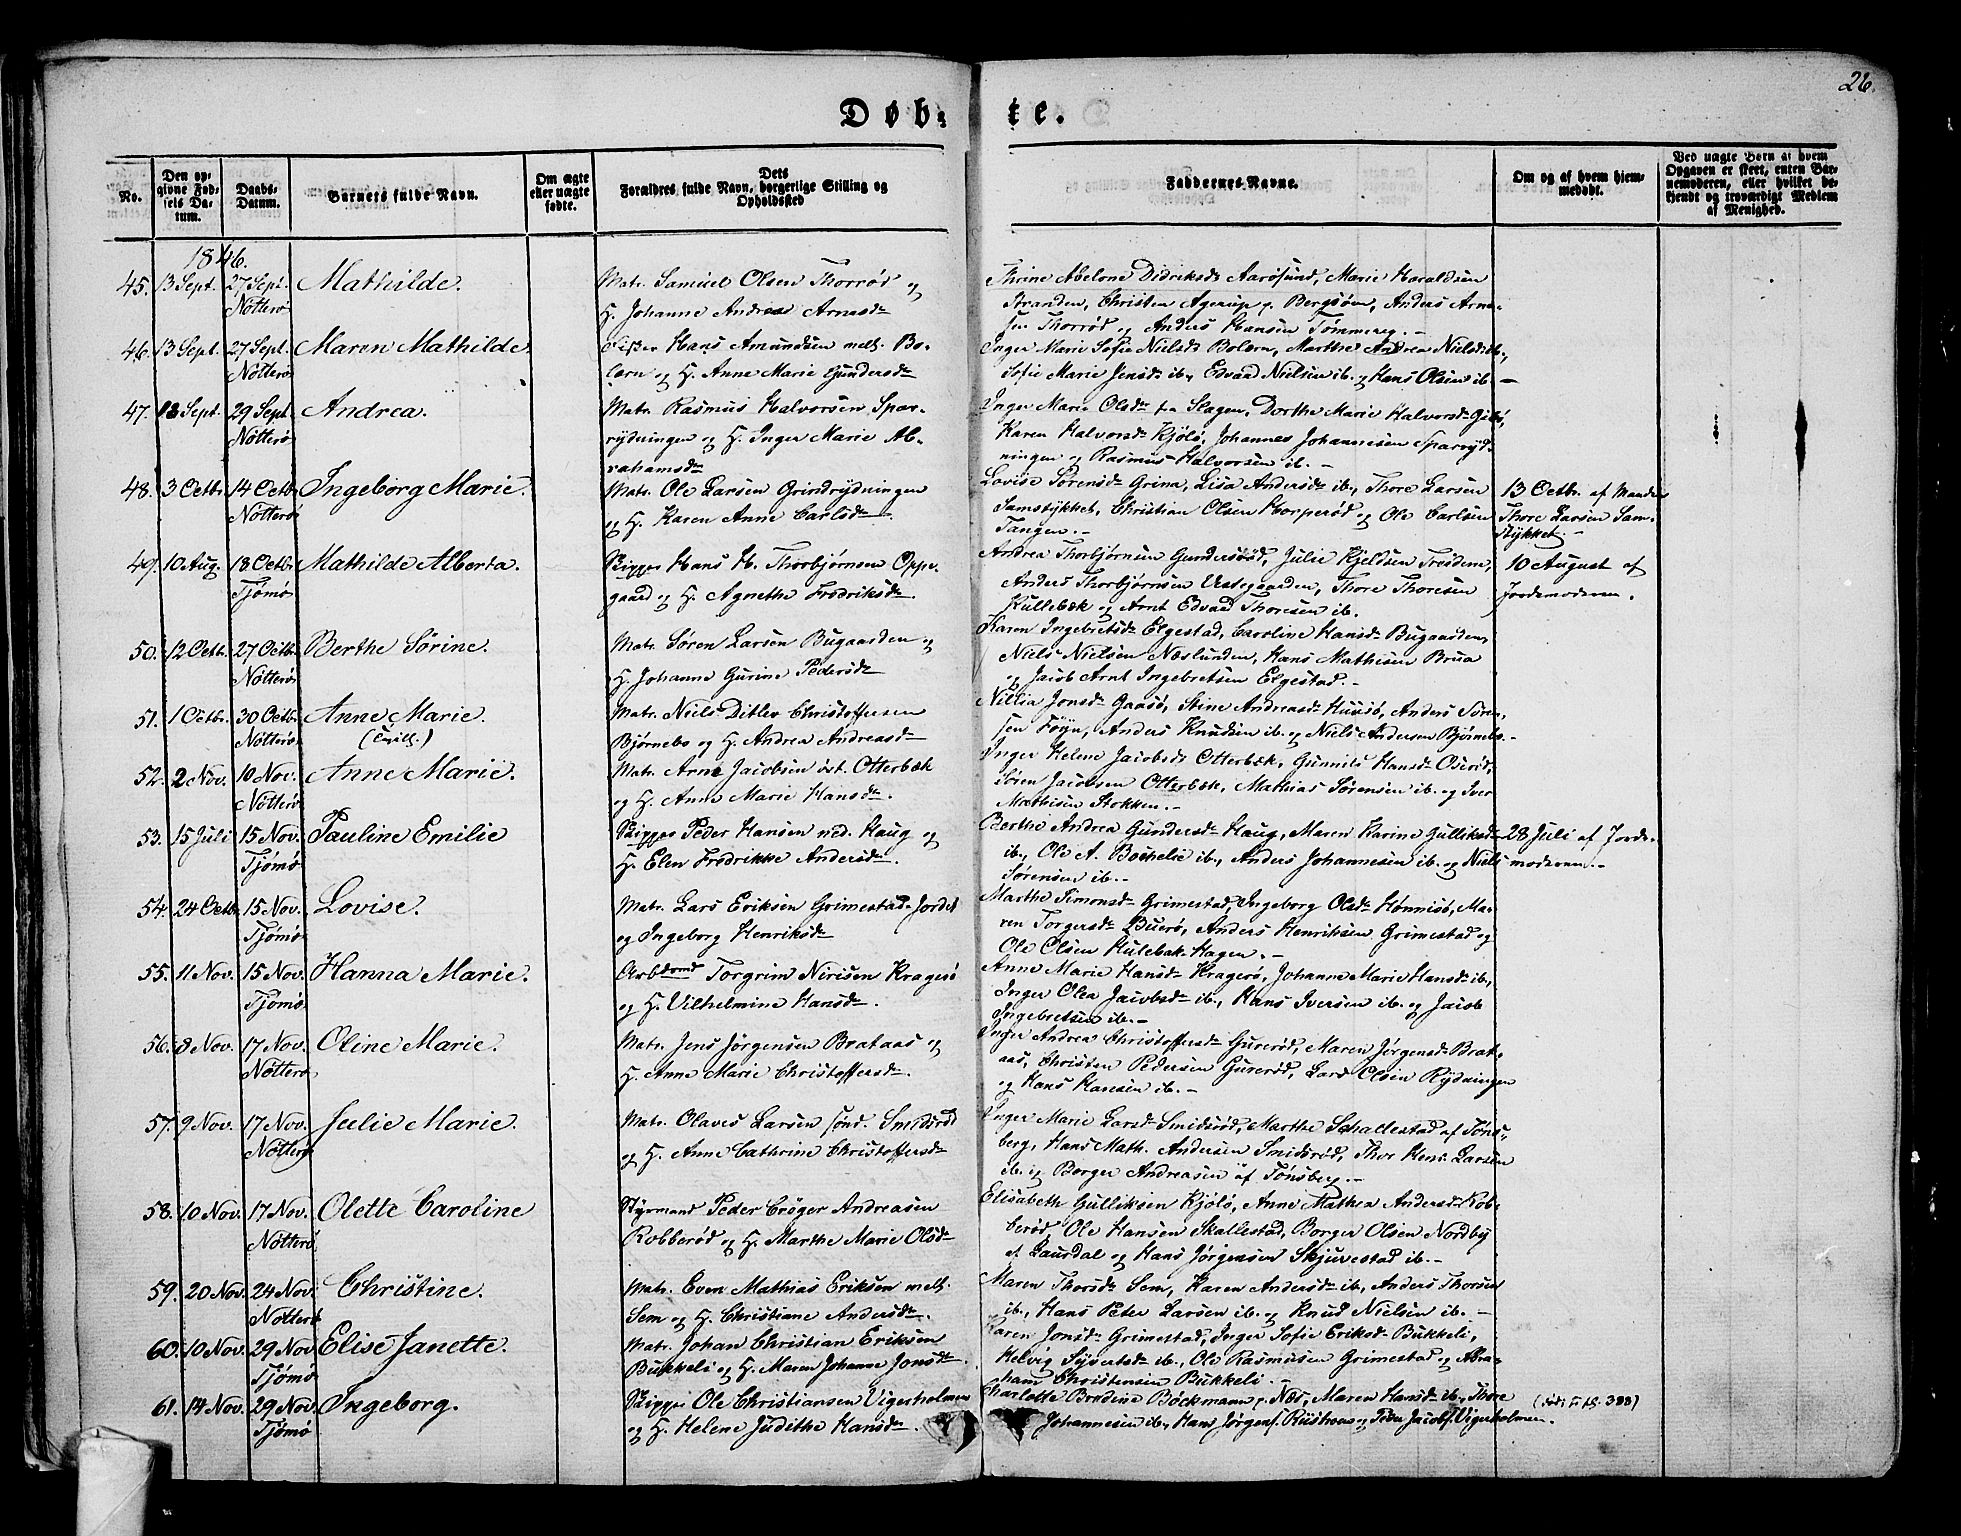 26.
Døb-te.
No.
Den op-
givne Fød-
sels Da-
tum.
Daabs-
Datum.
Barnets fulde Navn.
Om ægte
eller uægte
fødte.
Dets
Forældres fulde Navn, borgerlige Stilling og
Opholdssted
Faddernes Navne.
Om og af hvem hjem-
medøbt.
Ved uægte Børn at hvem
Opgaven er skeet, enten Bar-
nemoderen, eller hvilket be-
kjendt og troværdigt Medlem
af Menighed.
1846.
45. 13 Sept. 27 Sept. Nötterö Mathilde.
Matr. Samuel Olsen Thorrød og
H. Johanne Andrea Arnesdr
Thrine Abelone Didriksdr Aarøsund, Marie Haraldsen
Stranden, Christen Agerup p. Bergsøen, Anders Arne-
sen Thorrød og Anders Hansen Tømmereg.-
46. 13 Sept. 27 Sept. Nötterö Maren Mathilde.
Hans Amundsen mell. Bo-
læren og H. Anne Marie Gundersdr
Inger Marie Sofie Nielsdr Bolæren, Marthe Andrea Nielsdr ib.,
Sofie Marie Jensdr ib., Edvard Nielsen ib. og Hans Olsen ib.-
47. 18 Sept. 29 Sept. Nötterö Andrea.
Matr. Rasmus Halvorsen Spær-
rydningen og H. Inger Marie Ab-
rahamsdr
Inger Marie Olsdr fra Slagen, Dorthe Marie Halvorsdr
Karen Halvorsdr Kjölö, Johannes Johannesen Sparryd-
ningen og Rasmus Halvorsen ib.-
48. 3 Octb. 14 Octb. Nötterö Ingeborg Marie.
Matr. Ole Larsen Grindrydningen
og H. Karen Anne Carlsdr
Lovise Sörensdr Grina, Lisa Andersdr ib., Thore Larsen
Samstykket, Christian Olsen Horperød og Ole Carlsen
Tangen.-
13 Octbr. af Manden
Thore Larsen Sam-
stykket.-
49. 10 Aug. 18 Octb. Tjømø Mathilde Alberta.
Skipper Hans H. Thorbjørnsen Oppe-
gaard og H. Agnethe Fredriksdr
Andrea Thorbjørnsen Gundersrød, Julie Kjeldsen Treidene,
Anders Thorbjørnsen Vestegaarden, Thore Thoresen
Kullebæk og Arnt Edvard Thoresen ib.
10 August af
Jordemoderen.
50. 12 Octb. 27 Octb. Nötterö Berthe Sørine.
Matr. Søren Larsen Bugaarden og
H. Johanne Gurine Pedersdr
Karen Ingebretsdr Elgestad, Caroline Hansdr Bugaarden,
Niels Nielsen Næslunden, Hans Mathisen Brua
og Jacob Arnt Ingebretsen Elgestad.-
51. 1 Octb. 30 Octb. Nötterö Anne Marie.
(Tvill.)
Matr. Niels Ditlev Christoffersen
Bjørnebo og H. Andrea Andreasdr
Nillia Jonsdr Gaasö, Stine Andreasdr Husö, Anders Sören-
sen Föyn, Anders Knudsen ib. og Niels Andersen Bjørnebo.-
52. 2 Nov. 10 Nov. Nötterö Anne Marie.
Matr. Arne Jacobsen öst. Otterbæk
og H. Anne Marie Hansdr.
Inger Helene Jacobsdr Otterbæk, Gunnild Hansdr Oserød,
Søren Jacobsen Otterbæk, Mathias Sørensen ib. og Iver
Mathisen Stokken.-
53. 15 Juli 15 Nov. Tjømø Pauline Emilie
Skipper Peder Hansen ned. Haug og
H. Elen Fredrikke Andersdr.
Berthe Andrea Gundersdr Haug, Maren Karine Gulliksdr
ib., Ole A. Bochelie ib., Anders Johannesen ib. og Niels
Sørensen ib.-
28 Juli af Jorde-
moderen.-
54. 24 Octb. 15 Nov. Tjømø Lovise.
Matr. Lars Eriksen Grimestad-Jordet
og Ingeborg Henriksdr
Marthe Simonsdr Grimestad, Ingeborg Olsdr Hønnisö, Ma-
ren Torgersdr Buerö, Anders Henriksen Grimestad og
Ole Olsen Kulebæk-Hagen.-
55. 11 Nov. 15 Nov. Tjømø Hanna Marie.
Arbdmd Torgrim Nirisen Kragerö
og H. Vilhelmine Hansdr.
Anne Marie Hansdr Kragerö, Johanne Marie Hansdr ib.,
Inger Olea Jacobsdr ib., Hans Iversen ib. og Jacob
Ingebretsen ib.-
56. 8 Nov. 17 Nov. Nötterö Oline Marie.
Matr. Jens Jørgensen Brataas og
H. Anne Marie Christoffersdr.
Inger Andrea Christoffersdr Gurerød, Maren Jørgensdr Brat-
aas, Christen Pedersen Gurerød, Lars Olsen Rydningen
og Hans Hansen ib.-
57. 9 Nov. 17 Nov. Nötterö Julie Marie.
Matr. Olaves Larsen sönd. Smidsrød
og H. Anne Cathrine Christoffersdr
Inger Marie Larsdr Smidsrød, Marthe Schallestad af Tøns-
berg, Hans Math. Andersen Smidsrød, Thor Henr. Larsen
ib. og Borger Andreasen af Tønsberg.-
58. 10 Nov. 17 Nov. Nötterö Olette Caroline
Styrmand Peder Crøger Andreasen
Robberød og H. Marthe Marie Olsdr
Elisabeth Gulliksen Kjölö, Anne Mathea Andersdr Rob-
berød, Ole Hansen Skallestad, Borger Olsen Nordby
af Laurdal og Hans Jørgensen Skjuvestad ib.-
59. 20 Nov. 24 Nov. Nötterö Christine.
Matr. Even Mathias Eriksen mell.
Sem og H. Christiane Andersdr.
Maren Thorsdr Sem, Karen Andersdr ib., Anders Thorsen
ib., Hans Peter Larsen ib. og Knud Nielsen ib.-
60. 10 Nov. 29 Nov. Tjømø Elise Janette.
Matr. Johan Christian Eriksen
Bukkeli og H. Maren Johanne Jonsdr.
Karen Jonsdr Grimestad, Inger Sofie Eriksdr Bukkeli,
Helvig Syvertsdr ib., Ole Rasmusen Grimestad og Abra-
ham Christensen Bukkeli.-
61. 14 Nov. 29 Nov. Tjømø Ingeborg.
Skipper Ole Christiansen Vigerholmen
og H. Helene Judithe Hansdr.
Charlotte Brodine Böckmann p. Næs, Maren Hansdr ib., Thore
Johannesen ib., Hans Jørgens. og Peder Jacobs. Vigerholmen.